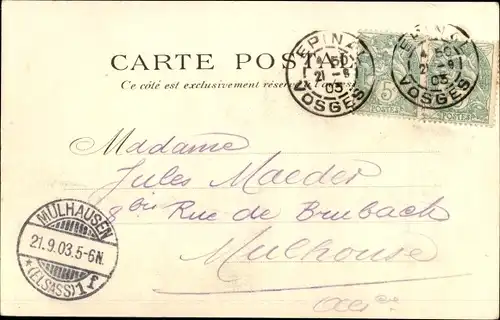 CARTE POSTALE
Ce côté est exclusivement réservé
EPINAL
21 -9
03
VOSGES
EPINAL
21 -9
03
VOSGES
5
POSTES
Madame
Jules Maeder
8 bis Rue de Brubach
Mulhouse
MÜLHAUSEN
21.9.03.5-6N.
*(ELSASS)1